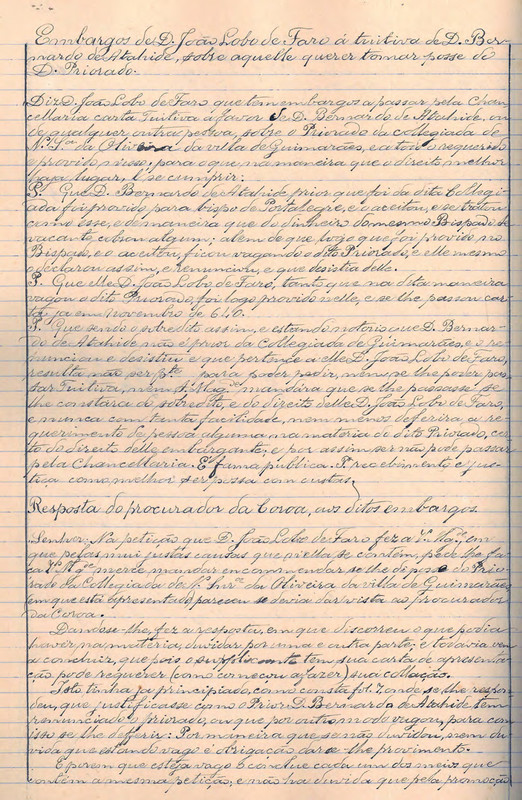 Embargos de D. João Lobo de Faro á tuitiva de D. Ber-
nardo de Atahide, sobre aquelle querer tomar posse do
D. Priorado.
Diz D. João Lobo de Faro que tem embargos a passar pela Chan-
cellaria carta Tuitiva a favor de D. Bernardo de Atahide, ou
de qualquer outra pessoa, sobre o Priorado da Collegiada de
N. Sr.ª da Oliveira da villa de Guimarães, e a tal o requerido
e provido nisso, para o que na maneira que o direito melhor
haja lugar, e se cumprir:
P. Que D. Bernardo de Atahide, prior que foi da dita Collegi-
ada foi provido para bispo de Portalegre, e o aceitou, e se tratou
como esse, e de maneira que do dinheiro do mesmo Bispado, se-
vacante, cobrou algum: alem de que, logo que foi provido no
Bispado, e o aceitou, ficou vagando o dito Priorado, e elle mesmo
o declarou assim, e renunciou, e que desistia delle.
P. Que elle D. João Lobo de Faro, tanto que na dita maneira
vagou o dito Priorado, foi logo provido nelle, e se lhe passou car-
ta, ja em Novembro de 640.
P. Que sendo o sobredito assim, e estando notorio que D. Bernar-
do de Atahide não é prior da Collegiada de Guimarães, e o re-
nunciou e desistiu e que pertence a elle D. João Lobo de Faro,
resulta não ser p.te para poder pedir, nem se lhe poder pas-
sar Tuitiva, nem S. Mag.de mandára que se lhe passasse se
lhe constára do sobredito, e do direito delle D. João Lobo de Faro,
e nunca com tanta facilidade, nem menos deferira, a re-
querimento de pessoa alguma na materia do dito Priorado, cer-
to do direito delle embargante, e por assim se não pode passar
pela Chancellaria. E fama publica. P. recebimento e jus-
tiça como melhor ser possa com custas.
Resposta do procurador da Coroa, aos ditos embargos
Senhor: Na petição que D. João Lobo de Faro fez a V. Mag.de, em
que pelas mui justas causas que n'ella se contêm, pede lhe fa-
ça V. Mg.de mercê mandar encommendar se lhe dê posse do Prio-
rado da Collegiada de N.ª Snr.ª da Oliveira da villa de Guimarães,
em que está apresentado pareceu se devia dar vista ao procurador
da Coroa.
Dando-se-lhe, fez a resposta, em que discorreu o que podia
haver, na materia, duvidar por uma e outra parte; e todavia vem
a concluir, que pois o supplicante tem sua carta de apresenta-
ção pode requerer (como começou a fazer) sua collação.
Isto tinha ja principiado, como consta fol. 1; onde se lhe respon-
deu, que justificasse como o Prior D. Bernardo de Atahide tem
renunciado o priorado, ou que por outro modo vagou, para com
isso se lhe deferir: Por maneira que se não duvidou, nem du-
vida que estando vago é obrigação dar-se-lhe provimento.
E porem que esteja vago se conclue cada um dos meios que
contêm a mesma petição; e não ha duvida que pela promoção